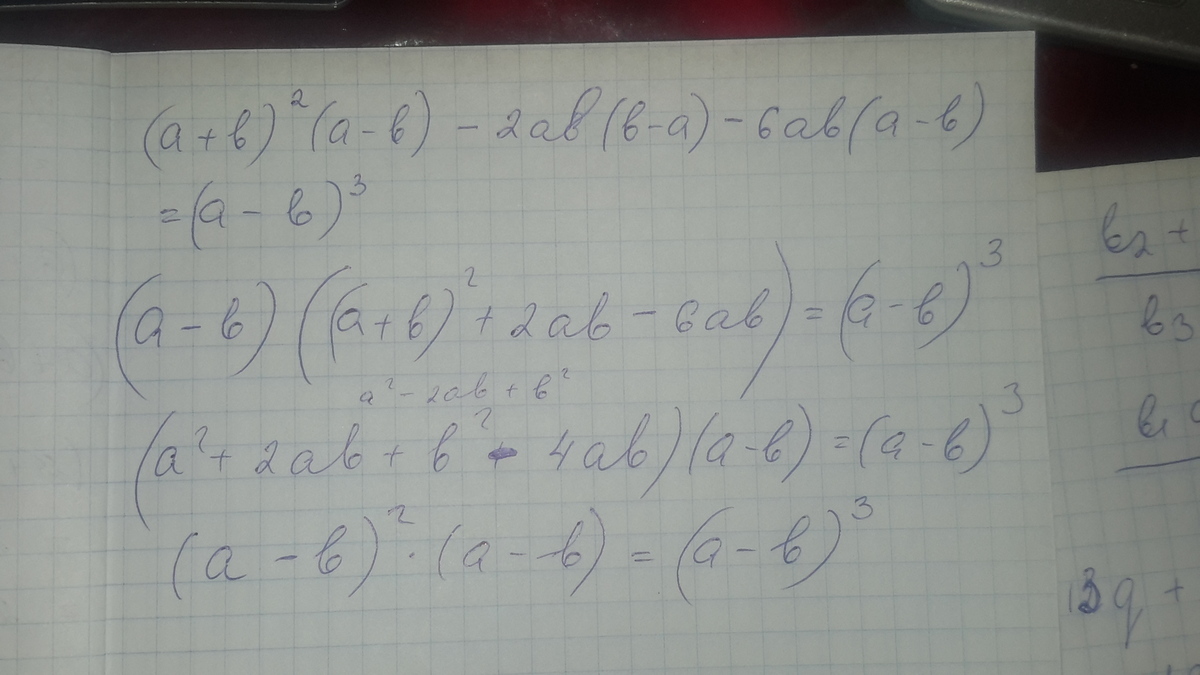 (a + b)² (a - b) - 2ab (b - a) - 6ab (a - b)
= (a - b)³
(a - b) ((a + b)² + 2ab - 6ab) = (a - b)³
a² - 2ab + b²
(a² + 2ab + b² - 4ab) (a - b) = (a - b)³
(a - b)² · (a - b) = (a - b)³
b₂ +
b₃
b₁
q +